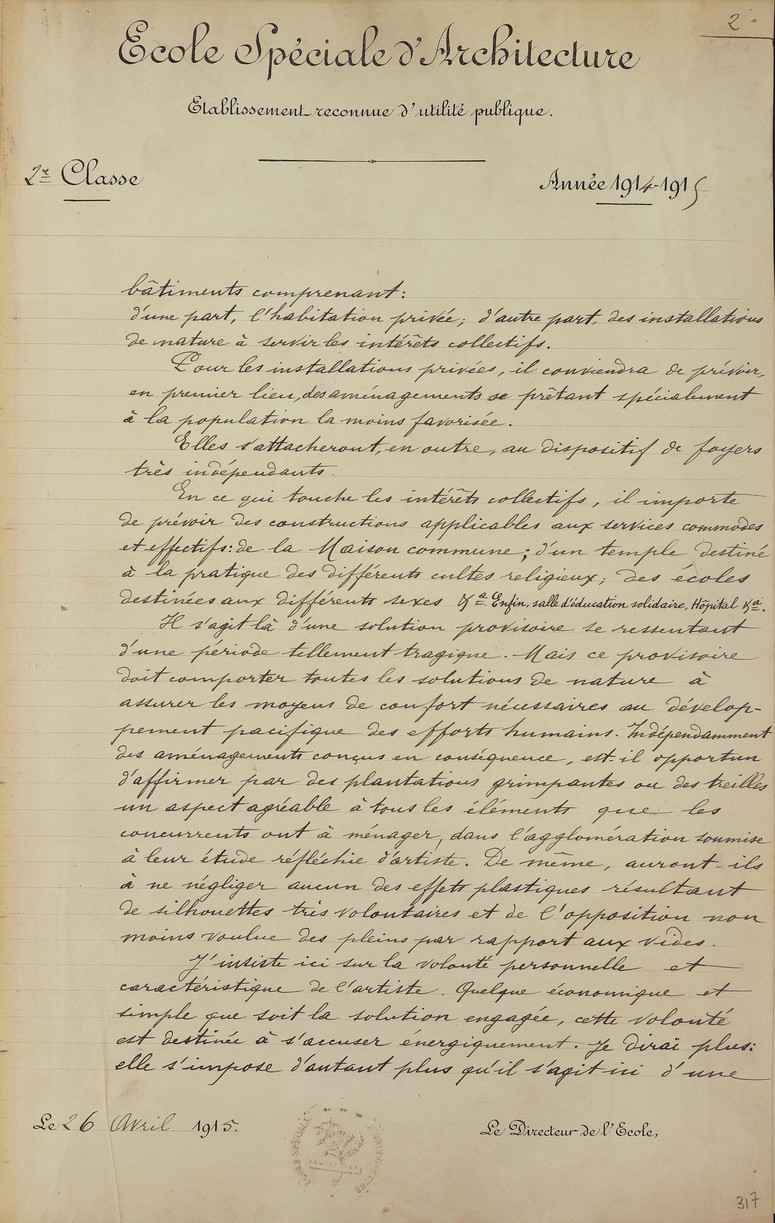 2
Ecole Spéciale d'Architecture
Etablissement reconnue d'utilité publique.
2e Classe
Année 1914-1915
bâtiments comprenant:
d'une part, l'habitation privée; d'autre part, des installations
de nature à servir les intérêts collectifs.
Pour les installations privées, il conviendra de prévoir,
en premier lieu, des aménagements se prêtant spécialement
à la population la moins favorisée.
Elles s'attacheront, en outre, au dispositif de foyers
très indépendants
En ce qui touche les intérêts collectifs, il importe
de prévoir des constructions applicables aux services commodes
et effectifs: de la Maison commune; d'un temple destiné
à la pratique des différents cultes religieux; des écoles
destinées aux différents sexes &a Enfin, salle d'éducation solidaire, Hôpital &a.
Il s'agit là d'une solution provisoire se ressentant
d'une période tellement tragique. Mais ce provisoire
doit comporter toutes les solutions de nature à
assurer les moyens de confort nécessaires au dévelop-
pement pacifique des efforts humains. Indépendamment
des aménagements conçus en conséquence, est-il opportun
d'affirmer par des plantations grimpantes ou des treilles
un aspect agréable à tous les éléments que les
concurrents ont à ménager, dans l'agglomération soumise
à leur étude réfléchie d'artiste. De même, auront-ils
à ne négliger aucun des effets plastiques résultant
de silhouettes très volontaires et de l'opposition non
moins voulue des pleins par rapport aux vides.
J'insiste ici sur la volonté personnelle et
caractéristique de l'artiste. Quelque économique et
simple que soit la solution engagée, cette volonté
est destinée à s'accuser énergiquement. Je dirai plus:
elle s'impose d'autant plus qu'il s'agit ici d'une
Le 26 Avril 1915.
Le Directeur de l'Ecole,
317